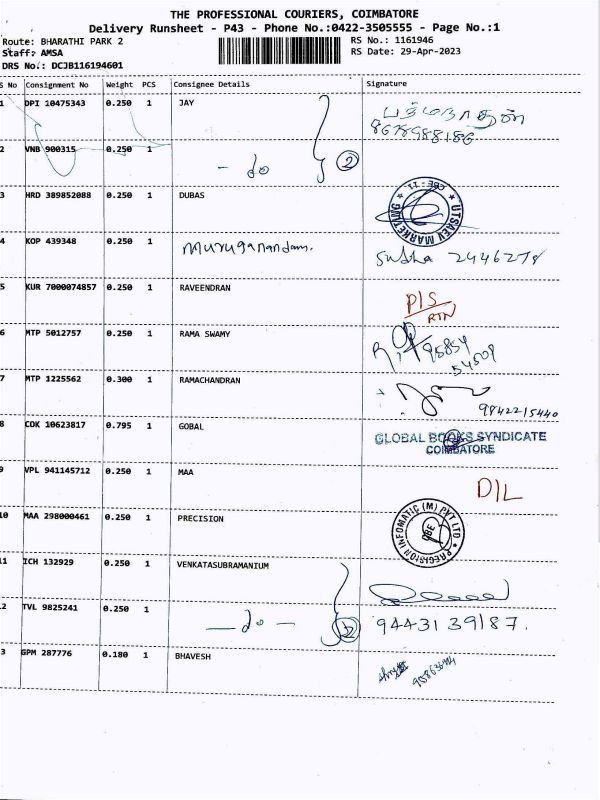 THE PROFESSIONAL COURIERS, COIMBATORE
Delivery Runsheet - P43 - Phone No.:0422-3505555 - Page No.:1
Route: BHARATHI PARK 2
RS No.: 1161946
Staff: AMSA
RS Date: 29-Apr-2023
DRS No.: DCJB116194601
S No Consignment No Weight PCS Consignee Details Signature
1 DPI 10475343 0.250 1 JAY பத்மநாதன்
8678988186
2 VNB 900315 0.250 1 - do 2
3 HRD 389852088 0.250 1 DUBAS
CBE - 11 * UTSAEV MARKETING *
4 KOP 439348 0.250 1 Muruganandam. Sudha
5 KUR 7000074857 0.250 1 RAVEENDRAN P/S
RTN
6 MTP 5012757 0.250 1 RAMA SWAMY
95854
54509
7 MTP 1225562 0.300 1 RAMACHANDRAN
9842215440
8 CDK 10623817 0.795 1 GOBAL GLOBAL BOOKS SYNDICATE
COIMBATORE
9 VPL 941145712 0.250 1 MAA D/L
10 MAA 298000461 0.250 1 PRECISION
PRECISION INFOMATIC (M) PVT LTD * CBE
11 ICH 132929 0.250 1 VENKATASUBRAMANIUM
2 TVL 9825241 0.250 1 - do - 2 9443139187.
3 GPM 287776 0.180 1 BHAVESH